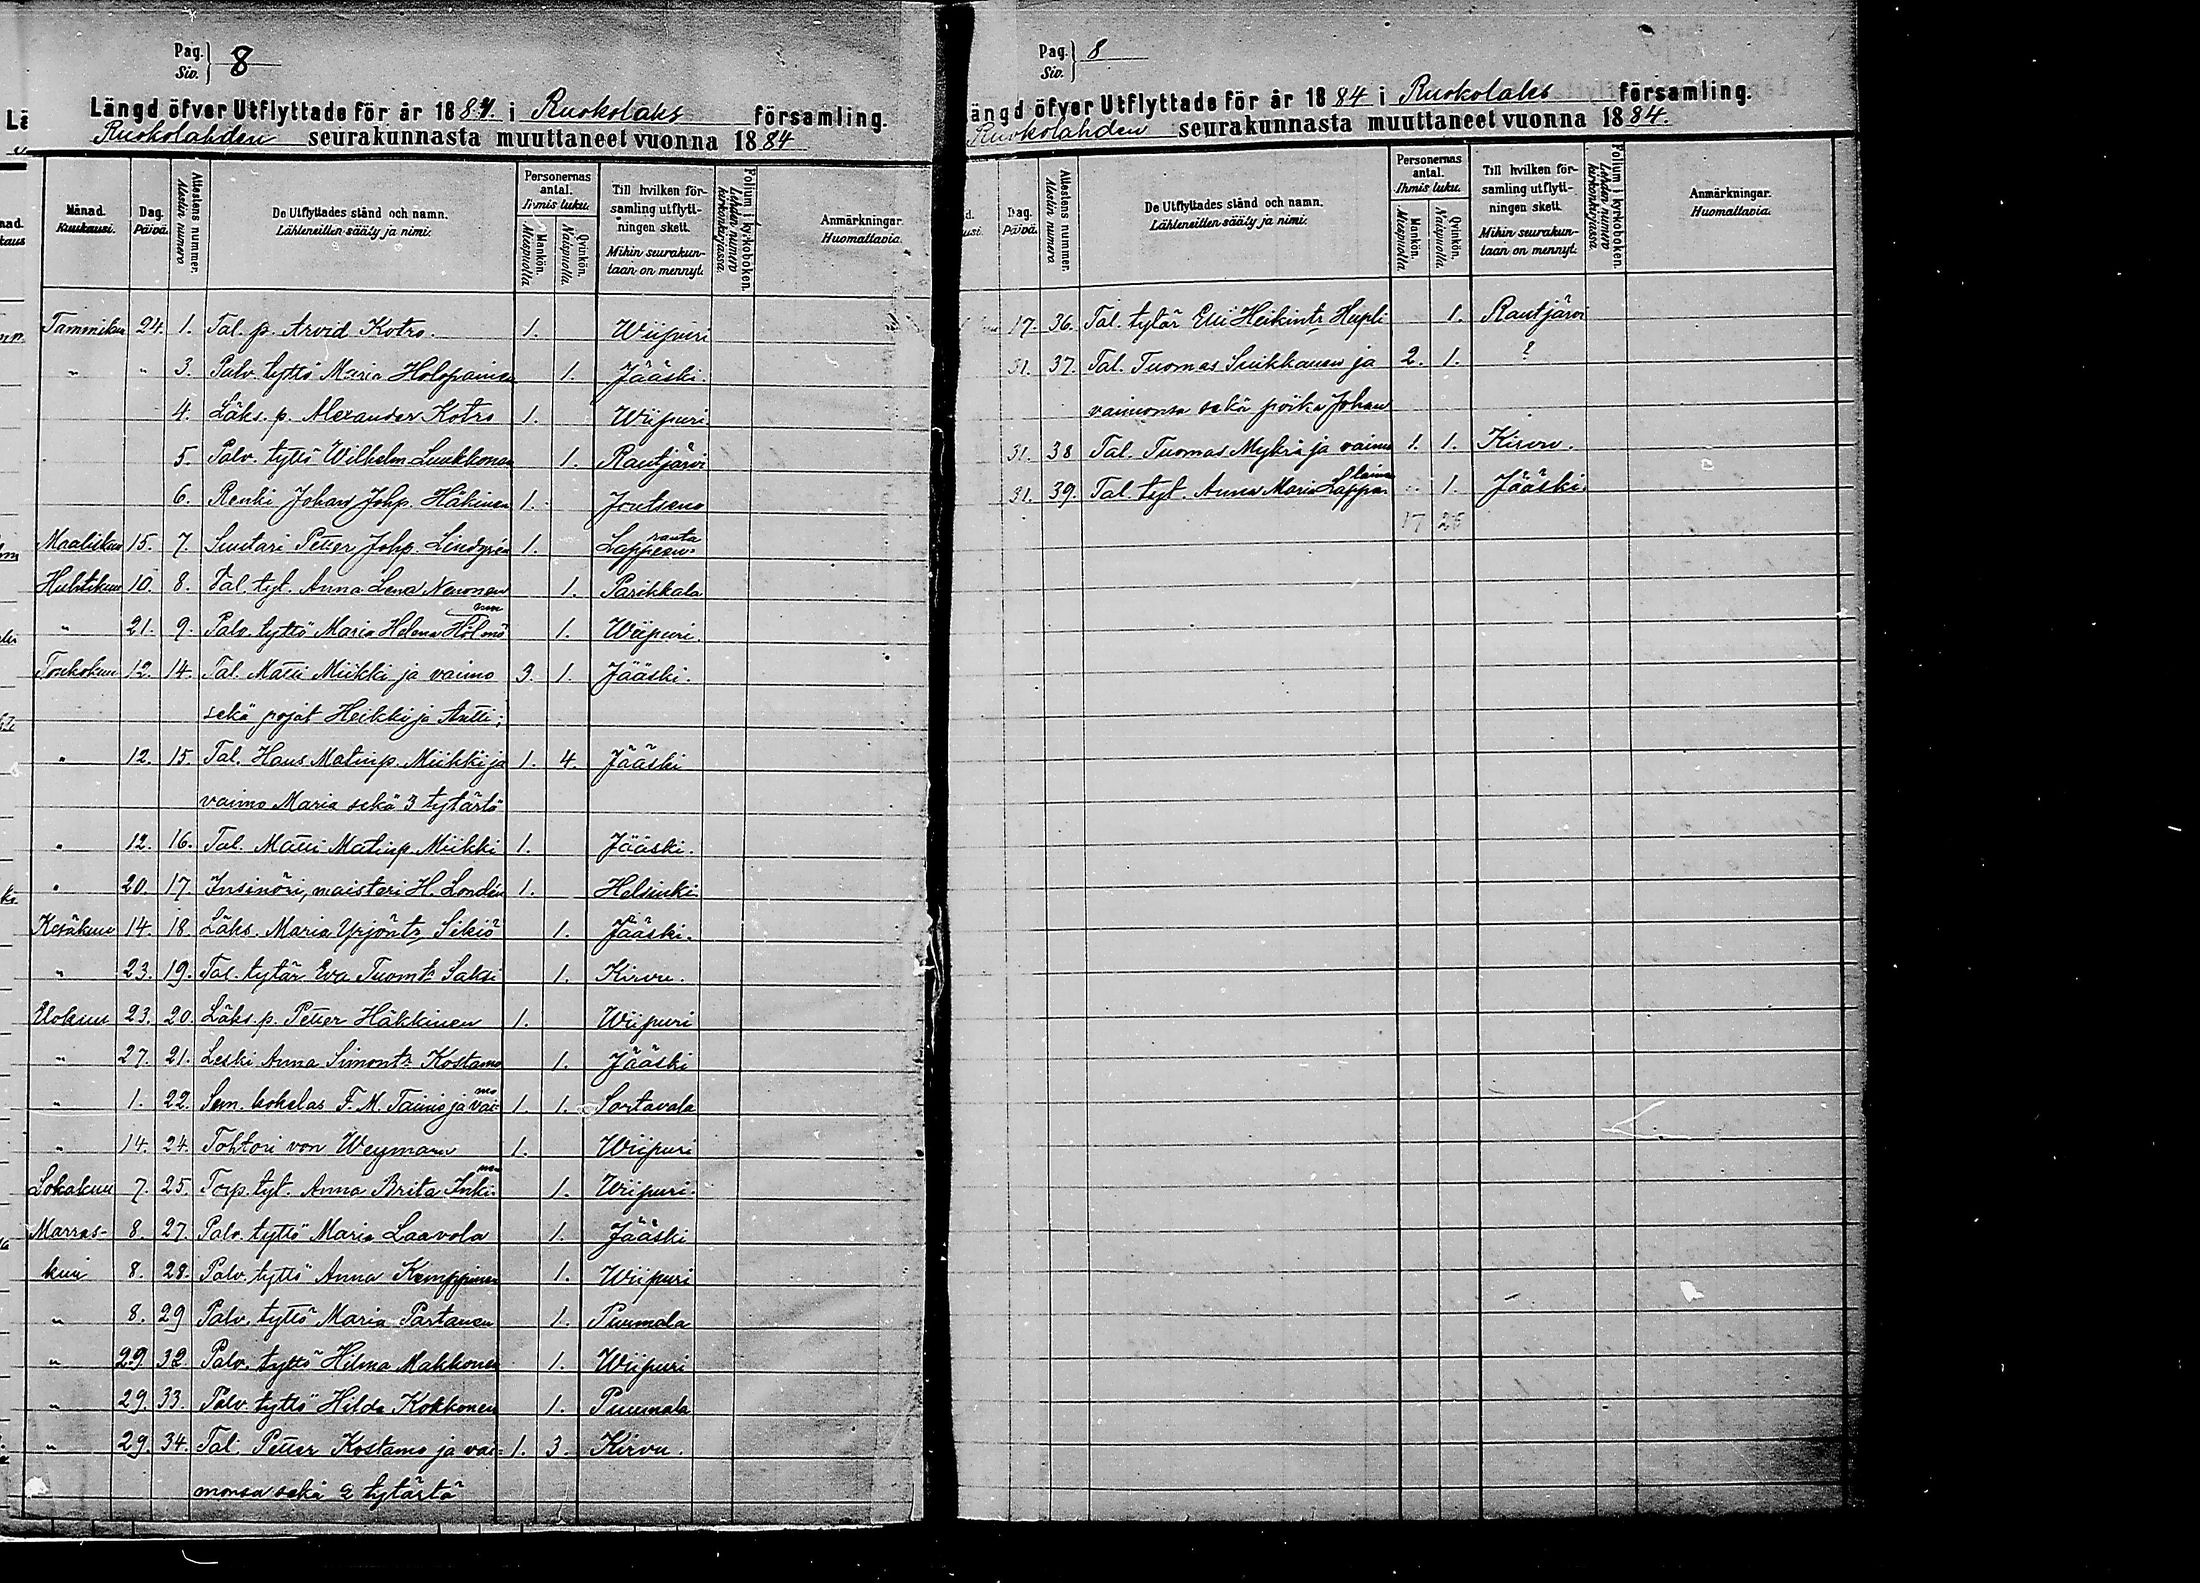 Pag. Siv. 8
Längd öfver Utflyttade för år 1884 i Ruokolaks församling.
Ruokolahden seurakunnasta muuttaneet vuonna 1884
Månad. Kuukausi. Dag. Päivä. Attestens nummer. Alestin numero. De Utflyttades stånd och namn. Lähteneitten sääty ja nimi. Personernas antal. Ihmis luku. Mankön. Miespuolta Qvinkön. Naispuolta. Till hvilken församling utflyttningen skett. Mihin seurakuntaan on mennyt. Folium i kyrkoboken. Lehden numero kirkonkirjassa. Anmärkningar. Huomattavia.
Tammikuu 24. 1. Tal. p. Arvid Kotro. 1. Wiipuri
" " 3. Palv. tyttö Maria Holopainen 1. Jääski.
4. Läks. p. Alexander Kotro 1. Wiipuri
5. Palv. tyttö Wilhelm. Luukkonen 1. Rautjärvi
6. Renki Johan Johp. Häkinen 1. Joutseno
Maaliskuu 15. 7. Suutari Petter Johp. Lindgrén 1. Lappeenranta
Huhtikuu 10. 8. Tal. tyt. Anna Lena Neuvonen 1. Parikkala
" 21. 9. Palv. tyttö Maria Helena Hölmö 1. Wiipuri.
Toukokuu 12. 14. Tal. Matti Miikki ja vaimo 3. 1. Jääski.
sekä pojat Heikki ja Antti;
" 12. 15. Tal. Hans Matinp. Miikki ja 1. 4. Jääski
vaimo Maria sekä 3 tytärtä
" 12. 16. Tal. Matti Matinp. Miikki 1. Jääski.
" 20. 17. Insinöri, maisteri H. Londén 1. Helsinki.
Kesäkuu 14. 18. Läks. Maria Yrjöntr. Sikiö 1. Jääski.
" 23. 19. Tal. tytär Eva Tuomtr. Saksi 1. Kirvu.
Elokuu 23. 20. Läks. p. Petter Häkkinen 1. Wiipuri
" 27. 21. Leski Anna Simontr. Kostamo 1. Jääski
" 1. 22. Sem. kokelas F. M. Tainio ja vaimo 1. 1. Sortavala
" 14. 24. Tohtori von Weymarn 1. Wiipuri
Lokakuu 7. 25. Torp. tyt. Anna Brita Inkinen 1. Wiipuri.
Marras- 8. 27. Palv. tyttö Maria Laavola 1. Jääski
kuu 8. 28. Palv. tyttö Anna Kemppinen 1. Wiipuri
" 8. 29 Palv. tyttö Maria Partanen 1. Puumala
" 29. 32. Palv. tyttö Hilma Makkonen 1. Wiipuri
" 29. 33. Palv. tyttö Hilda Kokkonen 1. Puumala
" 29. 34. Tal. Petter Kostamo ja vai- 1. 3. Kirvu.
monsa sekä 2 tytärtä
Pag. Siv. 8
ängd öfver Utflyttade för år 1884 i Ruokolaks församling.
Ruokolahden seurakunnasta muuttaneet vuonna 1884.
Dag. Päivä. Attestens nummer. Alestin numero De Utflyttades stånd och namn. Lähteneitten sääty ja nimi. Personernas antal. Ihmis luku. Mankön. Miespuolta Qvinkön. Naispuolta. Till hvilken församling utflyttningen skett. Mihin seurakuntaan on mennyt. Folium i kyrkoboken. Lehden numero kirkonkirjassa. Anmärkningar. Huomattavia.
17. 36. Tal. tytär Elli Heikintr. Hupli 1. Rautjärvi
31. 37. Tal. Tuomas Suikkanen ja 2. 1. ?
vaimonsa sekä poika Johan
31. 38 Tal. Tuomas Mykrä ja vaimo 1. 1. Kirvu.
31. 39. Tal. tyt. Anna Maria Lappalainen 1. Jääski.
17 25